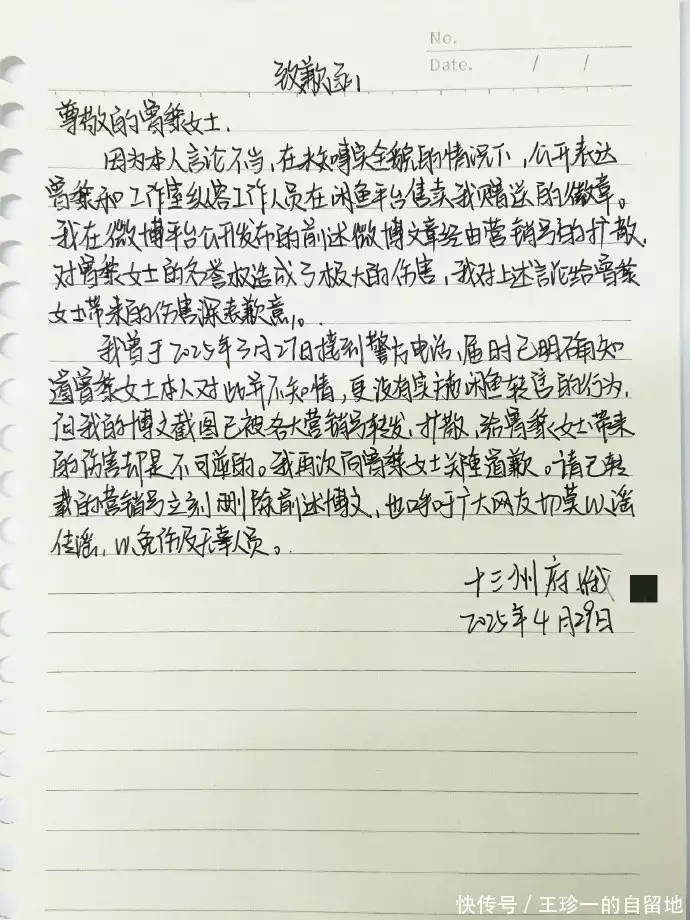 No.
Date. / /
致歉函
尊敬的曾黎女士.
因为本人言论不当,在未知事实全貌的情况下,公开表达
曾黎和工作室纵容工作人员在闲鱼平台售卖我赠送的徽章。
我在微博平台公开发布的前述微博文章经由营销号的扩散,
对曾黎女士的名誉权造成了极大的伤害,我对上述言论给曾黎
女士带来的伤害深表歉意。
我曾于2025年3月27日接到警方电话,届时已明确知
道曾黎女士本人对此并不知情,更没有实施闲鱼转售的行为,
但我的博文截图已被各大营销号转发、扩散,给曾黎女士带来
的伤害却是不可逆的。我再次向曾黎女士关键道歉。请已转
载的营销号立刻删除前述博文,也呼吁广大网友切莫以谣
传谣,以免伤及无辜人员。
十三州府
2025年4月29日
快传号/王珍一的自留地